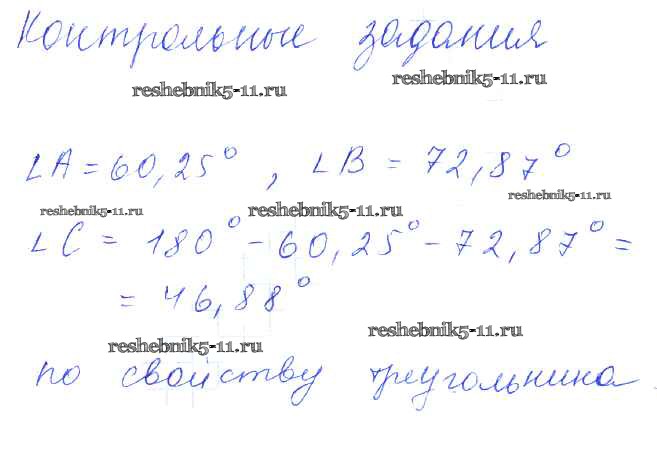 Контрольные задания
reshebnik5-11.ru
reshebnik5-11.ru
∠A = 60,25°, ∠B = 72,87°
reshebnik5-11.ru
reshebnik5-11.ru
reshebnik5-11.ru
∠C = 180° - 60,25° - 72,87° =
= 46,88°
reshebnik5-11.ru
reshebnik5-11.ru
по свойству треугольника